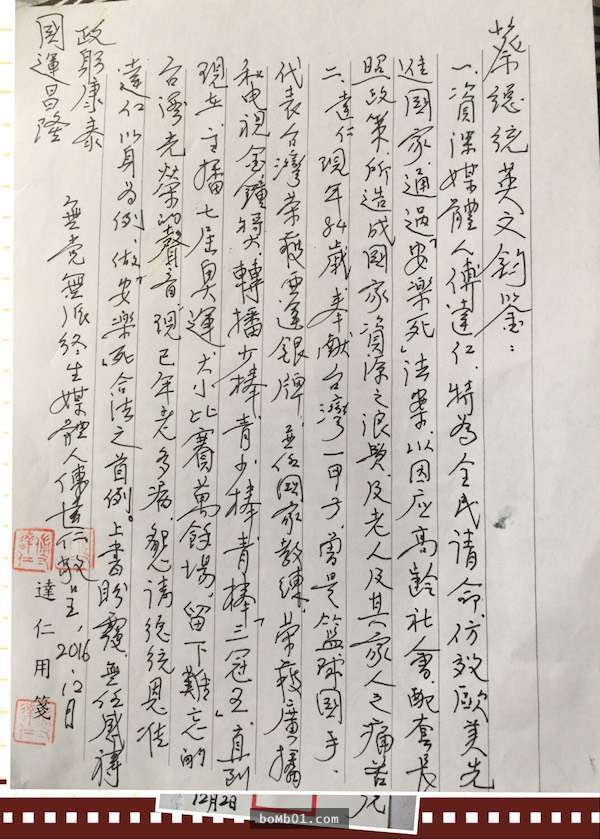 蔡總統英文鈞鑒：
一、資深媒體人傅達仁，特為全民請命，仿效歐美先
進國家，通過「安樂死」法案，以因应高齡社會，配套長
照政策所造成國家資源之浪費及老人及其家人之痛苦
二、達仁現年84歲，奉獻台灣一甲子，曾是籃球國手，
代表台灣榮獲亞運銀牌，並任國家教練，榮獲廣播
和電視金鐘獎，轉播少棒、青少棒、青棒「三冠王」，直到
現在，主播七屆奧運，大小比賽萬餘場，留下難忘的
台灣光榮的聲音，現已年老多病，懇請總統恩准
達仁以身為例，做「安樂死」合法之首例。上書盼覆，無任感禱
政躬康泰
國運昌隆
無党無派終生媒體人傅達仁敬呈，2016.12月
達仁用箋
12月2日
boMb01.com